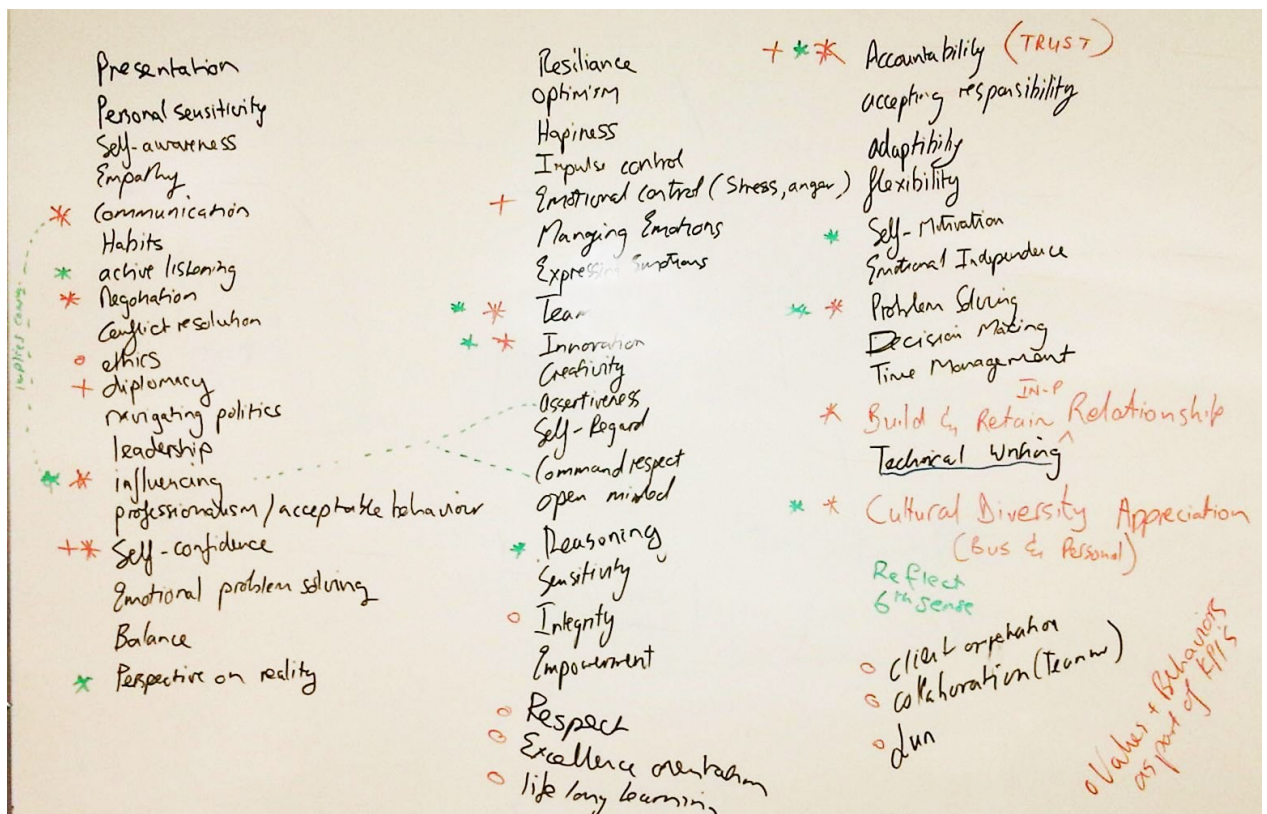 Presentation
Personal sensitivity
Self-awareness
Empathy
* Communication
Habits
* active listening
* Negotiation
Conflict resolution
o ethics
+ diplomacy
navigating politics
leadership
* * influencing
professionalism / acceptable behaviour
+ * Self-confidence
Emotional problem solving
Balance
* Perspective on reality
implies
Resiliance
Optimism
Hapiness
Impulse control
+ Emotional control (Stress, anger)
Managing Emotions
Expressing Emotions
* * Team
* * Innovation
Creativity
assertiveness
Self-Regard
Command respect
open minded
* Reasoning
Sensitivity
o Integrity
Empowerment
o Respect
o Excellence orientation
o life long learning
+ * * Accountability (TRUST)
accepting responsibility
adaptibility
flexibility
* Self-Motivation
Emotional Independence
* * Problem Solving
Decision Making
Time Management
IN-P
* Build & Retain Relationship
Technical Writing
* * Cultural Diversity Appreciation
(Bus & Personal)
Reflect
6th sense
o client
o collaboration
o
o Values + Behaviors
as part of KPIs